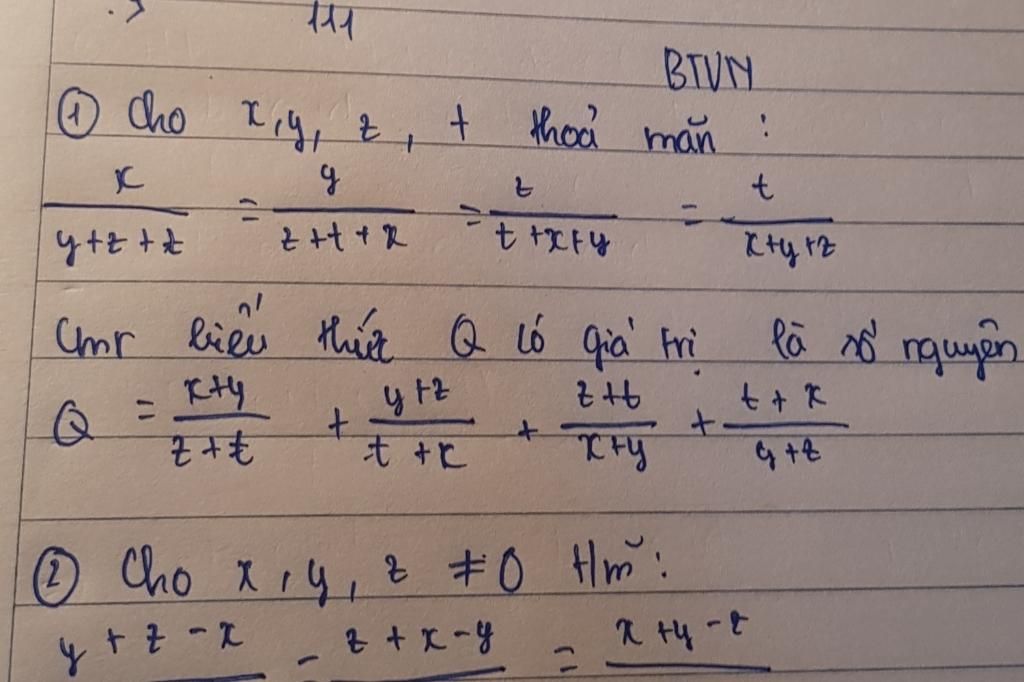 111
BTVN
① Cho x, y, z, t thoả mãn :
x/(y+z+z) = y/(z+t+x) = z/(t+x+y) = t/(x+y+z)
Cmr biểu thức Q có giá trị là số nguyên
Q = (x+y)/(z+t) + (y+z)/(t+x) + (z+t)/(x+y) + (t+x)/(y+z)
② Cho x, y, z ≠ 0 t/m :
y+z-x = z+x-y = x+y-z